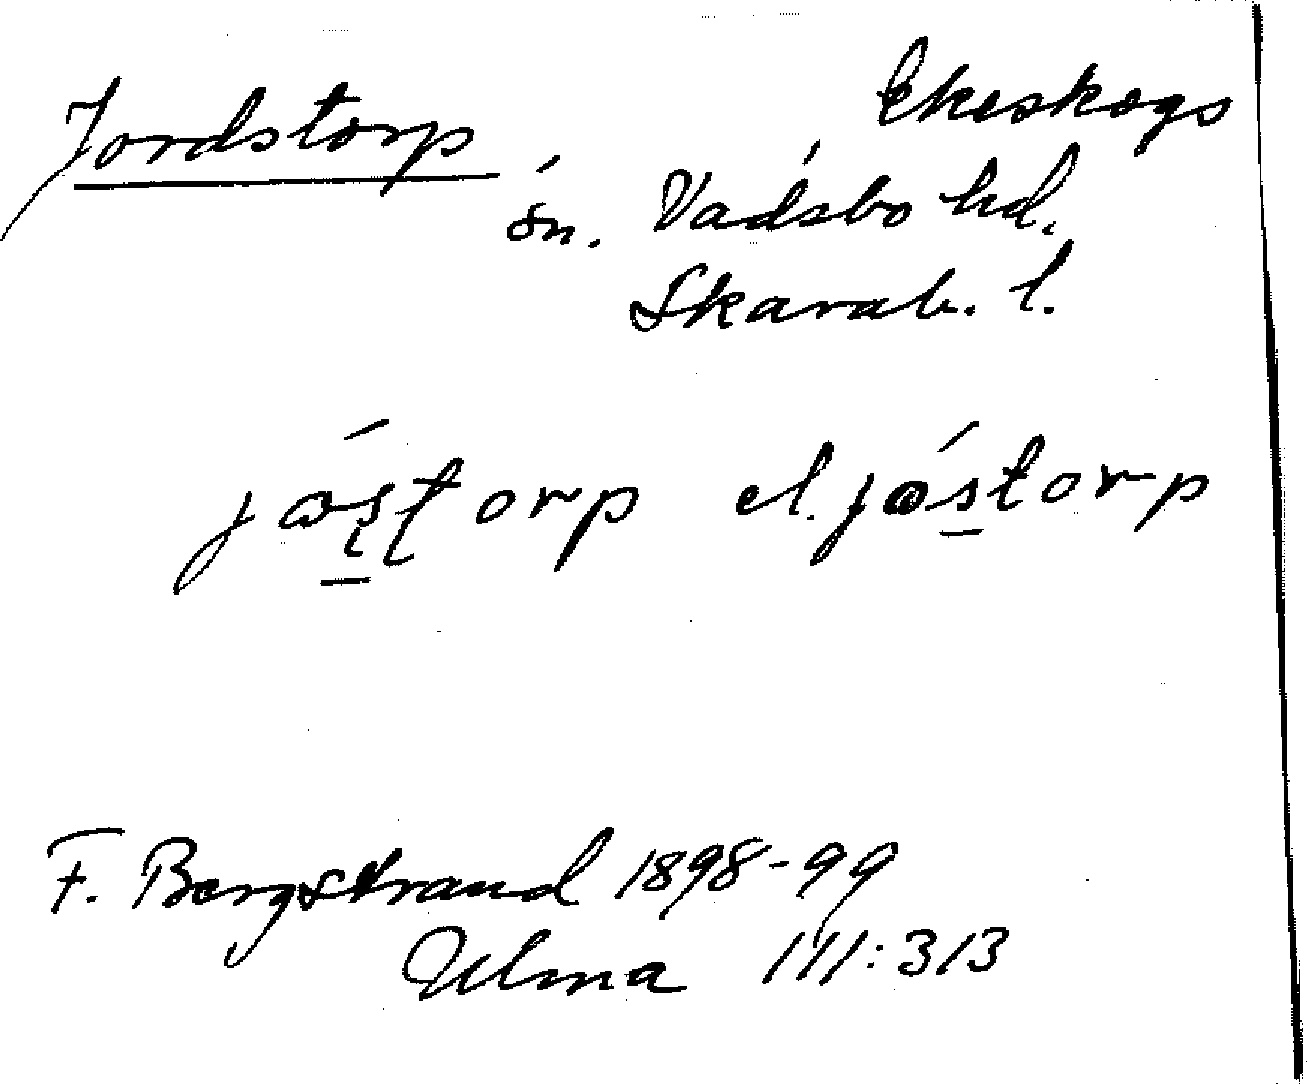 Jordstorp Ekeskogs
sn. Vadsbo hd.
Skarab. l.
jástorp el. jástorp
F. Bergstrand 1898-99
Ulma 111:313